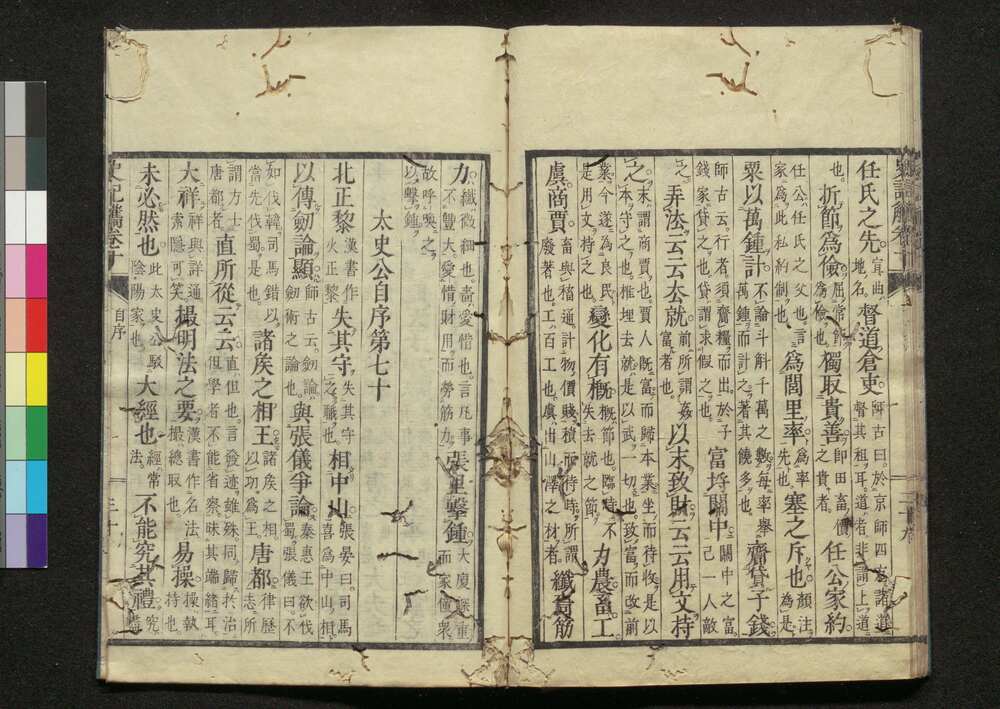 史記觿卷十
二十九
任氏之先宜曲地名督道倉吏師古曰於京師四方諸道督其租耳道者非謂上道
也折節為儉屈常節為儉也獨取貴善即田畜價之貴者任公家約
任公任氏之父也言家為此私約制也為閭里率為率先也塞之斥也顏注為是
粟以萬鍾計不論斗斛千萬之數每率舉萬鍾而計之著其饒多也齎貸子錢
師古云行者須齎糧而出於子錢家貸之也貸謂求假之也富埒關中關中之富己一人敵
之弄法云云去就前所謂姦富者也以末致財云云用文持
之末謂商賈也賈人既富而歸本業坐而待收是以本守之也椎埋去就是以武一切也致富而改前
業今遂為良民是用文持之也變化有槪槪節也臨時不失去就之節力農畜工
虞商賈畜與稸通計物價賤積而待時所謂廢著也工百工也虞出山澤之材者纖嗇筋
力纖微細也嗇愛惜也言凡事不豐大愛惜財用而勞筋力張里擊鍾大廈深重而家僮衆
故呼喚之以擊鍾
太史公自序第七十
北正黎漢書作火正黎失其守失其守之職也相中山張晏曰司馬喜為中山相
以傳劔論顯師古云劔論劔術之論也與張儀爭論秦惠王欲伐蜀張儀曰不
如伐韓司馬錯以當先伐蜀是也諸矦之相王諸矦之相以功為王唐都律歷志所
謂方士唐都者直所從云云直但也言發迹雖殊同歸於治但學者不能省察昧其端緒耳
大祥祥與詳通索隱可笑撮明法之要漢書作名法撮總取也易操操執持也
未必然也此太史公駁陰陽家也大經也經常法不能究其禮究
史記觿卷十
自序
三十